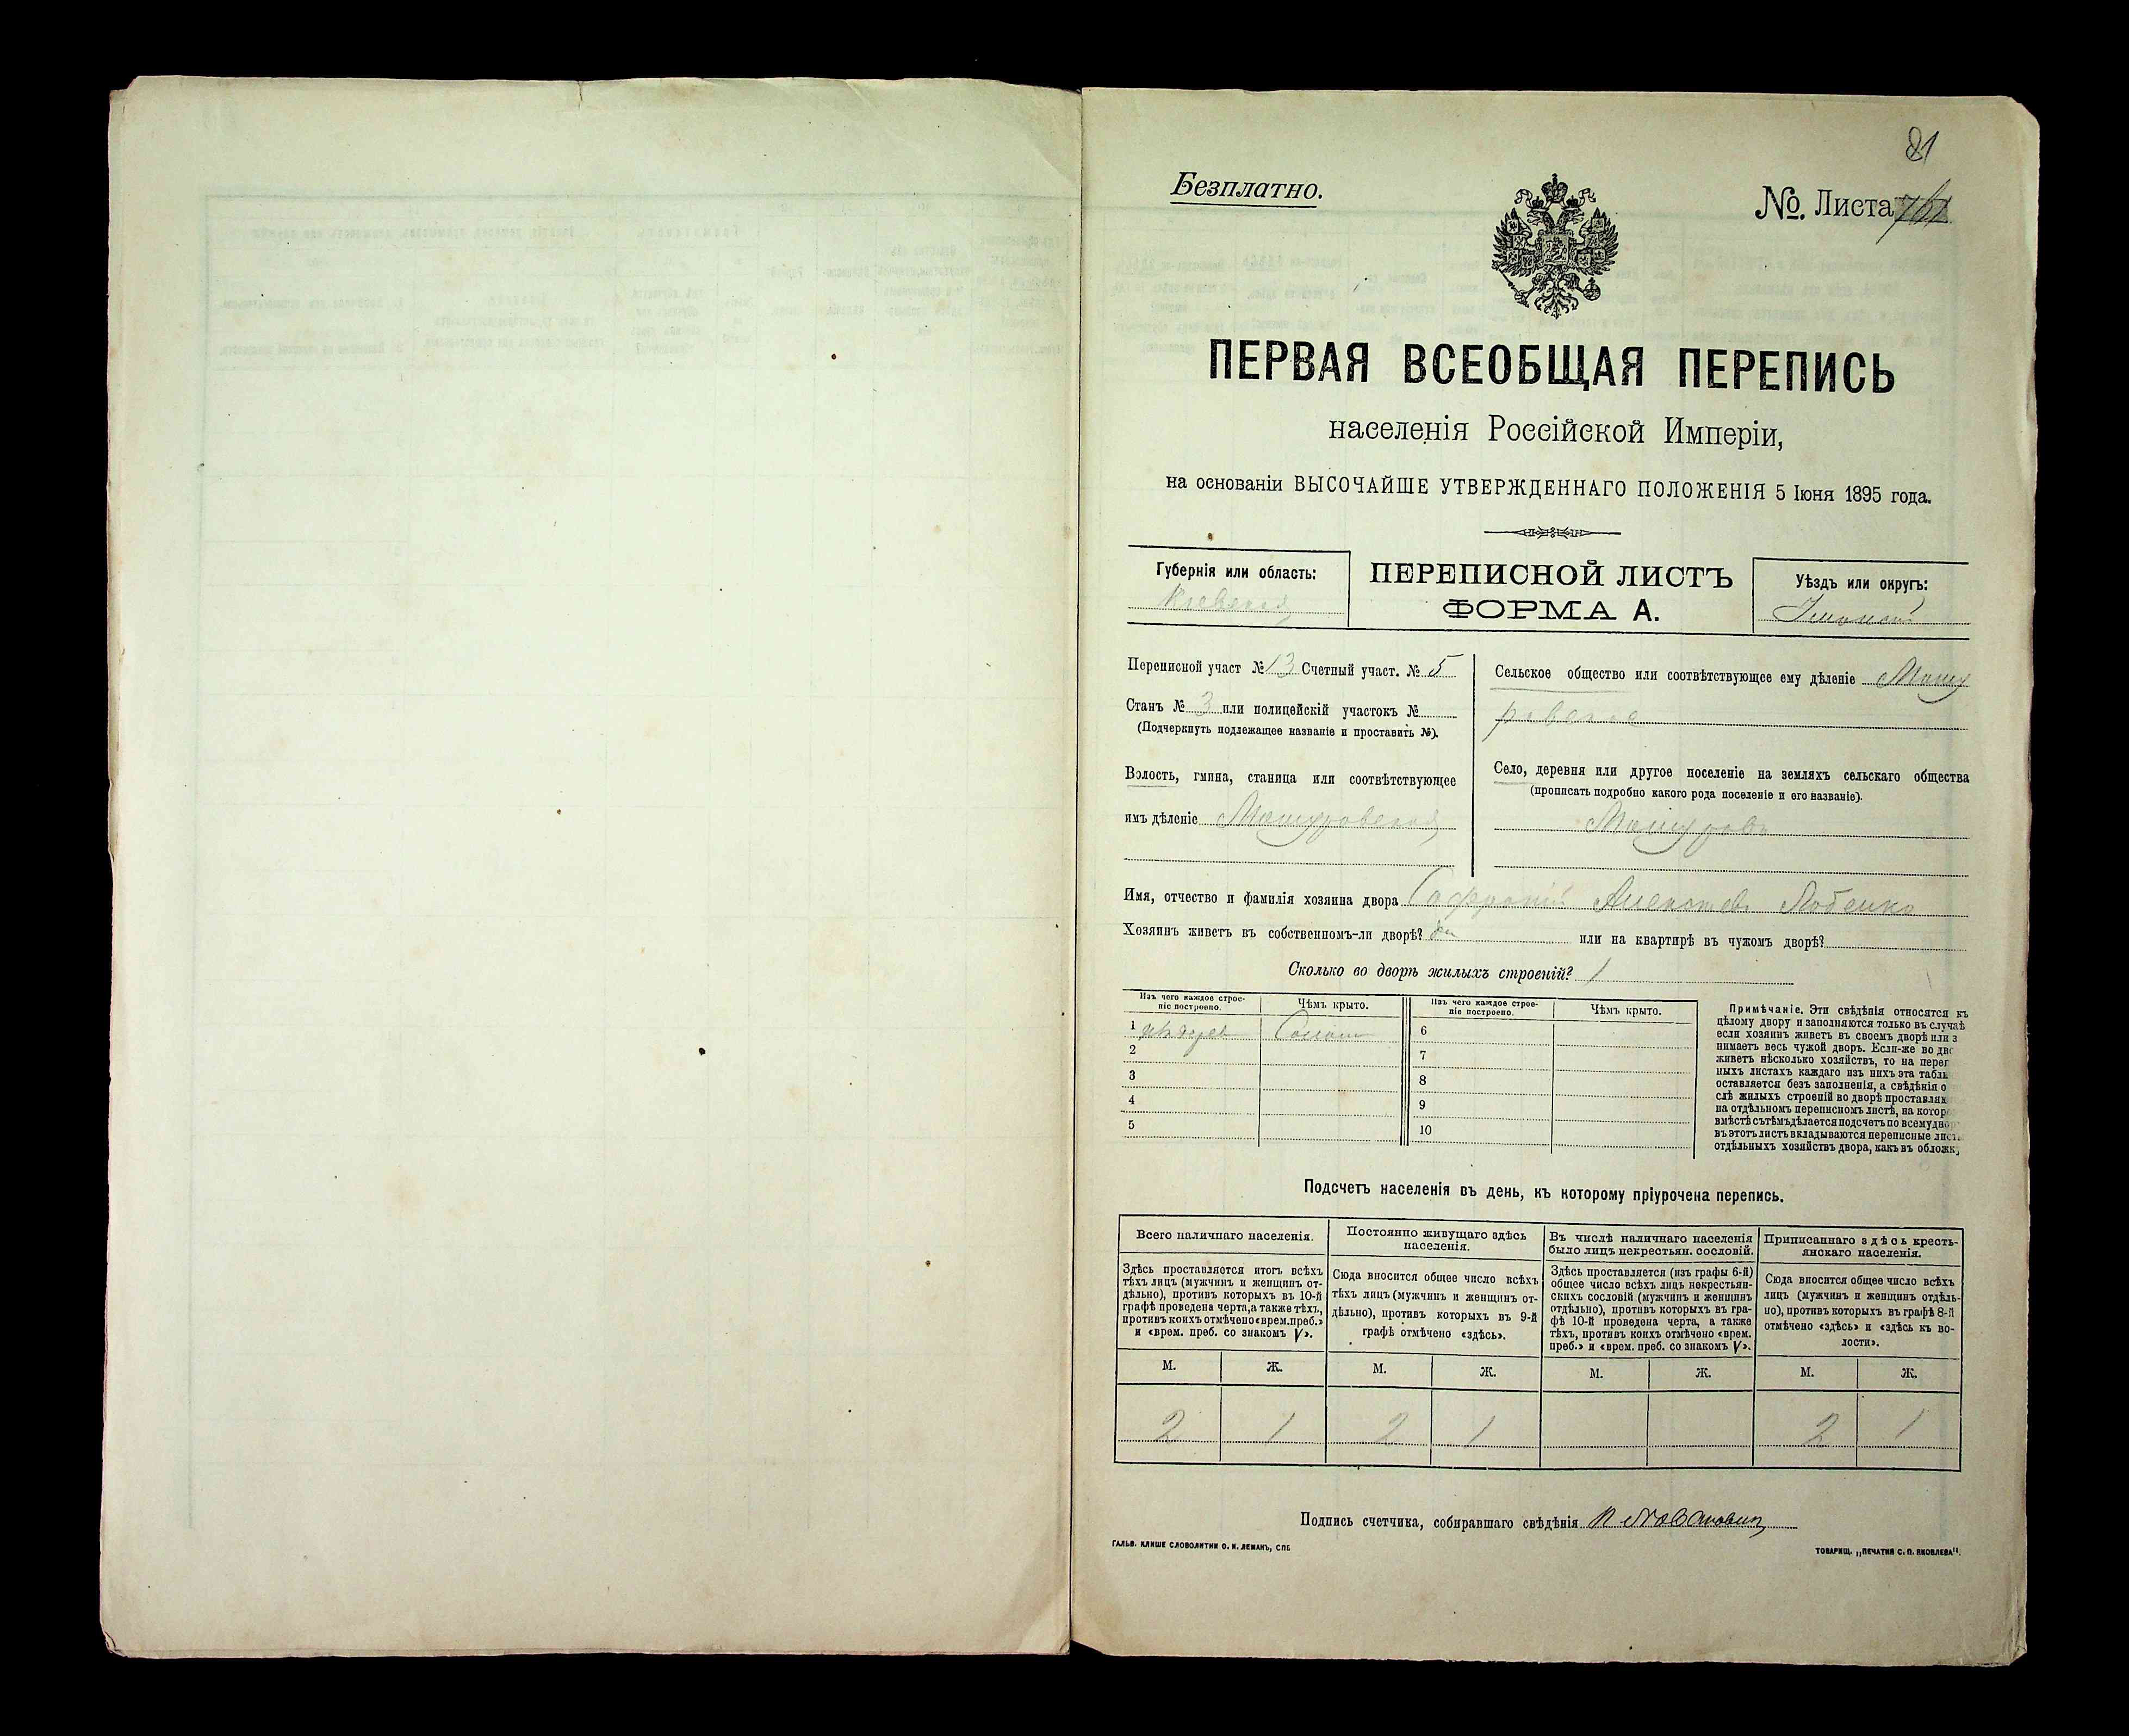 81
Безплатно.
№. Листа
ПЕРВАЯ ВСЕОБЩАЯ ПЕРЕПИСЬ
населенія Россійской Имперіи,
на основаніи ВЫСОЧАЙШЕ УТВЕРЖДЕННАГО ПОЛОЖЕНІЯ 5 Іюня 1895 года.
Губернія или область:
Кіевская
ПЕРЕПИСНОЙ ЛИСТЪ
ФОРМА А.
Уѣздъ или округъ:
Переписной участ № 13 Счетный участ. № 5
Станъ № 3 или полицейскій участокъ №
(Подчеркнуть подлежащее названіе и проставить №).
Волость, гмина, станица или соотвѣтствующее
имъ дѣленіе Машуровская
Сельское общество или соотвѣтствующее ему дѣленіе Машу
ровское
Село, деревня или другое поселеніе на земляхъ сельскаго общества
(прописать подробно какого рода поселеніе и его названіе).
Машуровъ
Имя, отчество и фамилія хозяина двора Софроній
Хозяинъ живетъ въ собственномъ-ли дворѣ? да или на квартирѣ въ чужомъ дворѣ?
Сколько во дворѣ жилыхъ строеній? 1
Изъ чего каждое строе-
ніе построено.
Чѣмъ крыто.
Изъ чего каждое строе-
ніе построено.
Чѣмъ крыто.
1 Солом 6
2 7
3 8
4 9
5 10
Примѣчаніе. Эти свѣдѣнія относятся къ
цѣлому двору и заполняются только въ случаѣ
если хозяинъ живетъ въ своемъ дворѣ или з
нимаетъ весь чужой дворъ. Если-же во дво
живетъ нѣсколько хозяйствъ, то на переп
ныхъ листахъ каждаго изъ нихъ эта табли
оставляется безъ заполненія, а свѣдѣнія о
слѣ жилыхъ строеній во дворѣ проставляю
на отдѣльномъ переписномъ листѣ, на котор
вмѣстѣ съ тѣмъ дѣлается подсчетъ по всему дво
въ этотъ листъ вкладываются переписные лист
отдѣльныхъ хозяйствъ двора, какъ въ обложк
Подсчетъ населенія въ день, къ которому пріурочена перепись.
Всего наличнаго населенія.
Здѣсь проставляется итогъ всѣхъ
тѣхъ лицъ (мужчинъ и женщинъ от-
дѣльно), противъ которыхъ въ 10-й
графѣ проведена черта, а также тѣхъ,
противъ коихъ отмѣчено «врем. преб.»
и «врем. преб. со знакомъ V».
Постоянно живущаго здѣсь
населенія.
Сюда вносится общее число всѣхъ
тѣхъ лицъ (мужчинъ и женщинъ от-
дѣльно), противъ которыхъ въ 9-й
графѣ отмѣчено «здѣсь».
Въ числѣ наличнаго населенія
было лицъ некрестьян. сословій.
Здѣсь проставляется (изъ графы 6-й)
общее число всѣхъ лицъ некрестьян-
скихъ сословій (мужчинъ и женщинъ
отдѣльно), противъ которыхъ въ гра-
фѣ 10-й проведена черта, а также
тѣхъ, противъ коихъ отмѣчено «врем.
преб.» и «врем. преб. со знакомъ V».
Приписаннаго здѣсь кресть-
янскаго населенія.
Сюда вносится общее число всѣхъ
лицъ (мужчинъ и женщинъ отдѣль-
но), противъ которыхъ въ графѣ 8-й
отмѣчено «здѣсь» и «здѣсь къ во-
лости».
М. Ж. М. Ж. М. Ж. М. Ж.
2 1 2 1 2 1
Подпись счетчика, собиравшаго свѣдѣнія
ГАЛЬВ. КЛИШЕ СЛОВОЛИТНИ О. И. ЛЕМАНЪ, СПБ
ТОВАРИЩ. „ПЕЧАТНЯ С. П. ЯКОВЛЕВА“.